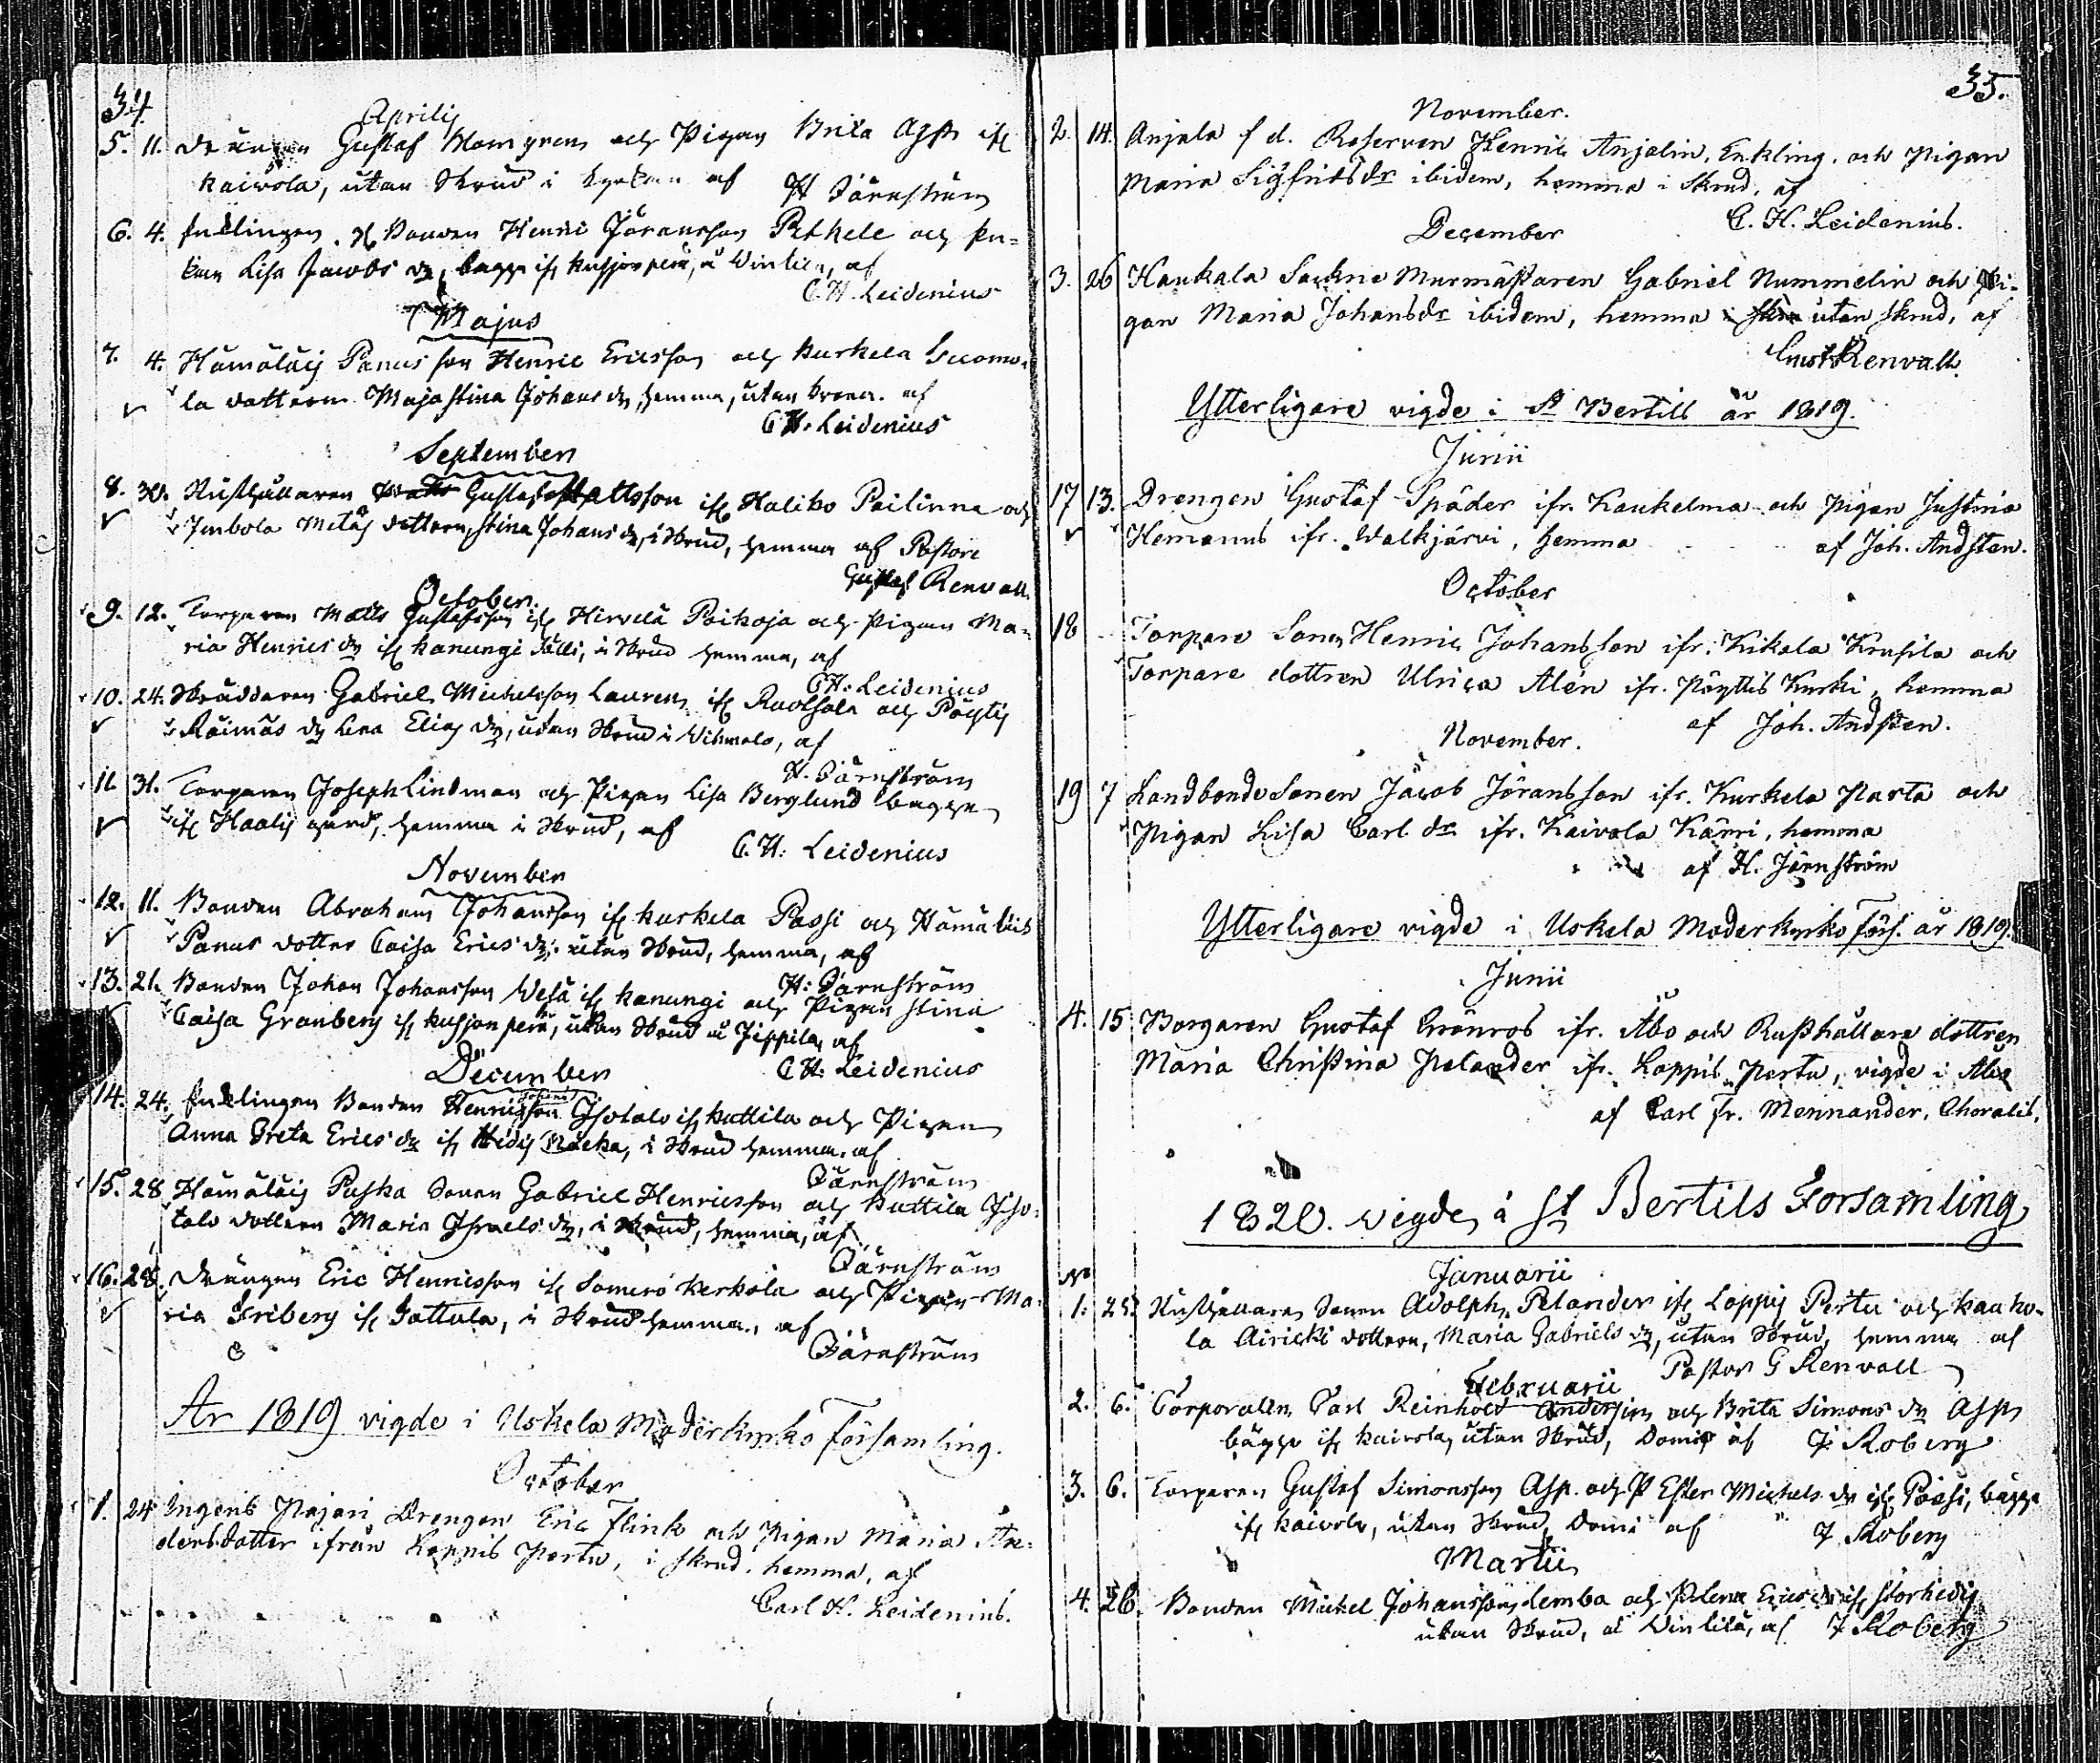 34.
Aprilis
5. 11. Drängen Gustaf Malmgren och Pigan Brita Asp ifr
Kaivola, utan Skrud i kyrkan af
H Järnström
6. 4. Enklingen Bonden Henric Jöransson Pethele och En=
kan Lisa Jacobs dr, bägge ifr Kusjonperä, a Vintilä, af
C. H. Leidenius
Majus
7. 4. Hämäläis Panus son Henric Ericsson och Kurkela Suomo-
la dottren Maja Stina Johans dr, hemma, utan krona. af
C H. Leidenius
September
8. 30. Rusthållaren Gustaf Mattsson ifr Haliko Pailinna och
Inbola Metäs dottren, Stina Johans dr, i Skrud, hemma af Pastorn
Gustaf Renvall
October
9. 12. Torparen Matts Gustafsson ifr Hirvelä Poikoja och Pigan Ma-
ria Henrics dr ifr Kanungi Sälli, i Skrud hemma, af
C H. Leidenius
10. 24. Skräddaren Gabriel Michelsson Lauren, ifr Ruotsala och Pöytis
Raimäs dr Lena Elias dr, utan Skrud i Vihmalo, af
H. Järnström
11. 31. Torparen Joseph Lindman och Pigan Lisa Berglund bägge
ifr Haalis gård, hemma i Skrud, af
C. H. Leidenius
November
12. 11. Bonden Abraham Johansson ifr Kurkela Passi och Hämäläis
Panus dotter Caisa Erics dr, utan Skrud, hemma, af
H. Järnström
13. 21. Bonden Johan Johansson Vesä ifr Kanungi och Pigan Stina
Caisa Granberg ifr Kusjonperä, utan Skrud a Jippila, af
C H. Leidenius
December
14. 24. Enklingen Bonden Henric Johansson Isotalo ifr Kuttila och Pigan
Anna Greta Erics dr ifr Hidis Näcka, i Skrud hemma. af
Järnström
15. 28. Hämäläis Puska Sonen Gabriel Henricsson och Kuttila Iso=
talo dottren Maria Israels dr, i Skrud, hemma, af
Järnström
16. 28. Drängen Eric Henricsson ifr Somero Kerkola och Pigan Ma-
ria Friberg ifr Jattula, i Skrud hemma, af
Järnström
År 1819 vigde i Uskela Moderkyrko Församling.
October
1. 24 Ingeris Pajari Drengen Eric Flink och Pigan Maria An-
dersdotter ifrån Loppis Pertu, i skrud. hemma, af
Carl H. Leidenius.
35.
November.
2. 14. Anjala f d. Reserven Henric Anjolin, Enkling. och Pigan
Maria Sigfridsdr ibidem, hemma i Skrud, af
C. H. Leidenius.
December
3. 26 Haukala Sockne Murmästaren Gabriel Nummelin och Pi-
gan Maria Johansdr ibidem, hemma utan skrud, af
Gust Renvall.
Ytterligare vigde i St Bertils år 1819.
Junii
17 13. Drengen Gustaf Späder ifr. Kaukelma och Pigan Justina
Hemanns ifr. Walkjärvi, hemma af Joh. Andsten.
October
18 Torpare Sonen Henric Johansson ifr. Kikala Krusila och
Torpare dottren Ulrica Alén ifr. Pöyttis Kurki, hemma
af Joh. Andsten.
November.
19 7 Landbonde Sonen Jacob Jöransson ifr. Kurkela Parta och
Pigan Lisa Carl dr ifr. Kaivola Kärri, hemma
af H. Järnström
Ytterligare vigde i Uskela Moderkyrko förs. år 1819.
Junii
4. 15 Borgaren Gustaf Grönros ifr. Åbo och Rusthållare dottren
Maria Christina Pelander ifr. Loppis Pertu, vigde i Åbo
af Carl Fr. Mennander, Choralis.
1820. vigde i St Bertils Forsamling
No
Januarii
1. 25. Rusthållare Sonen Adolph Pelander ifr Loppis Pertu och Kauko-
la Airicki dottren, Maria Gabriels dr, utan Skrud, hemma af
Pastor G Renvall
Februarii
2. 6. Corporalen Carl Reinhold Andersin och Brita Simons dr Asp
bägge ifr Kaivola, utan Skrud, Domi af J. Roberg
3. 6. Torparen Gustaf Simonsson Asp. och P Ester Michels dr ifr Poiksi, bägge
ifr Kaivola, utan Skrud, Domi af J Roberg
Martii
4. 26. Bonden Michel Johansson Lemba och Pelena Erics dr ifr Storhidis
utan Skrud, a Vintilä, af J Roberg